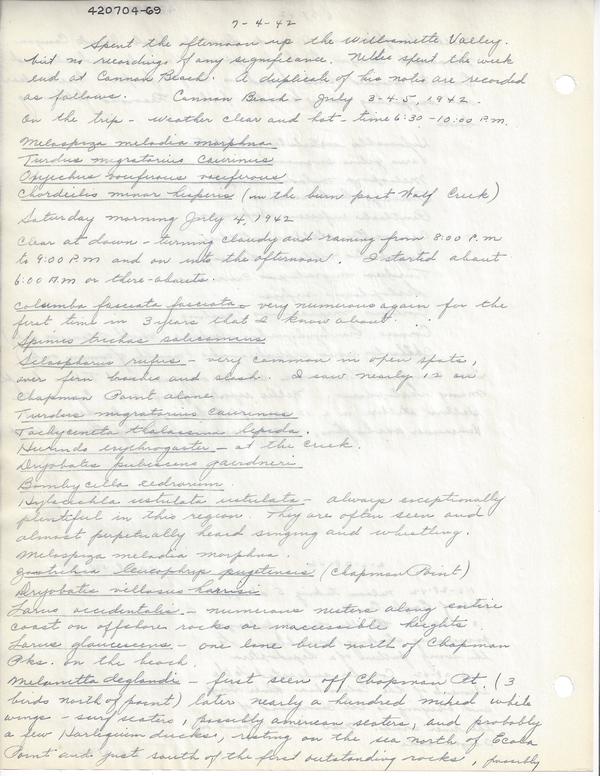 420704-69
7-4-42
Spent the afternoon up the Willamette Valley.
but no recordings of any significance. Nelles spent the week
end at Cannon Beach. A duplicate of his notes are recorded
as follows. Cannon Beach - July 3-4-5, 1942.
On the trip - weather clear and hot - time 6:30 - 10:00 P.M.
Melospiza melodia morphna
Turdus migratorius caurinus
Oxyechus vociferous vociferous
Chordeiles minor hesperis (in the burn past Wolf Creek)
Saturday morning July 4, 1942
Clear at dawn - turning cloudy and raining from 8:00 P.M
to 9:00 P.M and on into the afternoon. I started about
6:00 A.M or there-abouts.
Columba fasciata fasciata - very numerous again for the
first time in 3 years that I know about.
Spinus tristus salicamans
Selasphorus rufus - very common in open spots,
over fern brakes and slash. I saw nearly 12 on
Chapman Point alone.
Turdus migratorius caurinus
Tachycineta thalassina lepida.
Hirundo erythrogaster - at the creek.
Dryobates pubescens gairdneri
Bombycilla cedrorum.
Hylocichla ustulata ustulata - always exceptionally
plentiful in this region. They are often seen and
almost perpetually heard singing and whistling.
Melospiza melodia morphna.
Zonotrichia leucophrys pugetensis (Chapman Point)
Dryobates villosus harrisi
Larus occidentalis - numerous nesters along entire
coast on offshore rocks or inaccessible heights
Larus glaucescens - one lone bird north of Chapman
Pks. on the beach.
Melanitta deglandi - first seen off Chapman Pt. (3
birds north of point) later nearly a hundred mixed white
wings - surf scoters, possibly american scoters, and probably
a few Harlequin ducks, resting on the sea north of Ecola
Point and just south of the first outstanding rocks, possibly